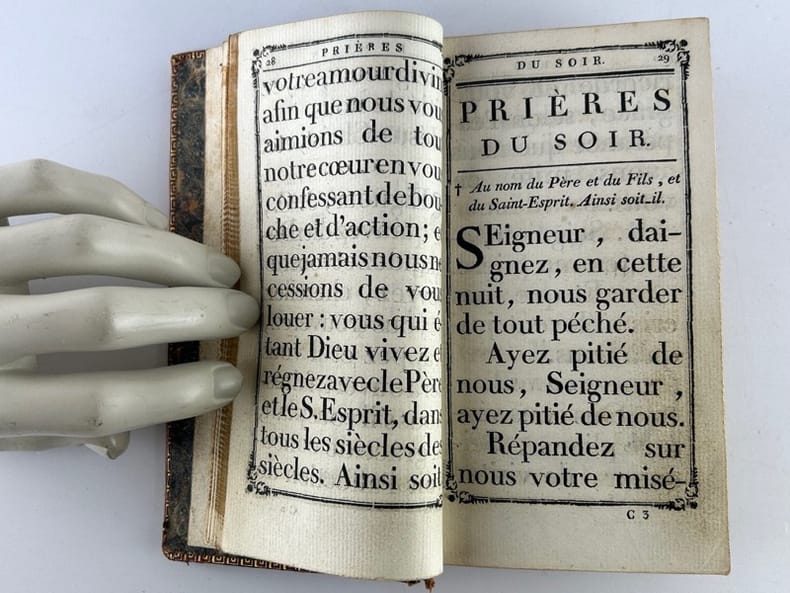 28
PRIÈRES
votre amour divin
afin que nous vou
aimions de tou
notre cœur en vou
confessant de bou-
che et d'action; e
que jamais nous n
cessions de vou
louer : vous qui é-
tant Dieu vivez e
régnez avec le Père
et le S. Esprit, dans
tous les siècles des
siècles. Ainsi soit
DU SOIR.
29
PRIÈRES
DU SOIR.
† Au nom du Père et du Fils, et
du Saint-Esprit. Ainsi soit-il.
SEigneur, dai-
gnez, en cette
nuit, nous garder
de tout péché.
Ayez pitié de
nous, Seigneur,
ayez pitié de nous.
Répandez sur
nous votre misé-
C 3